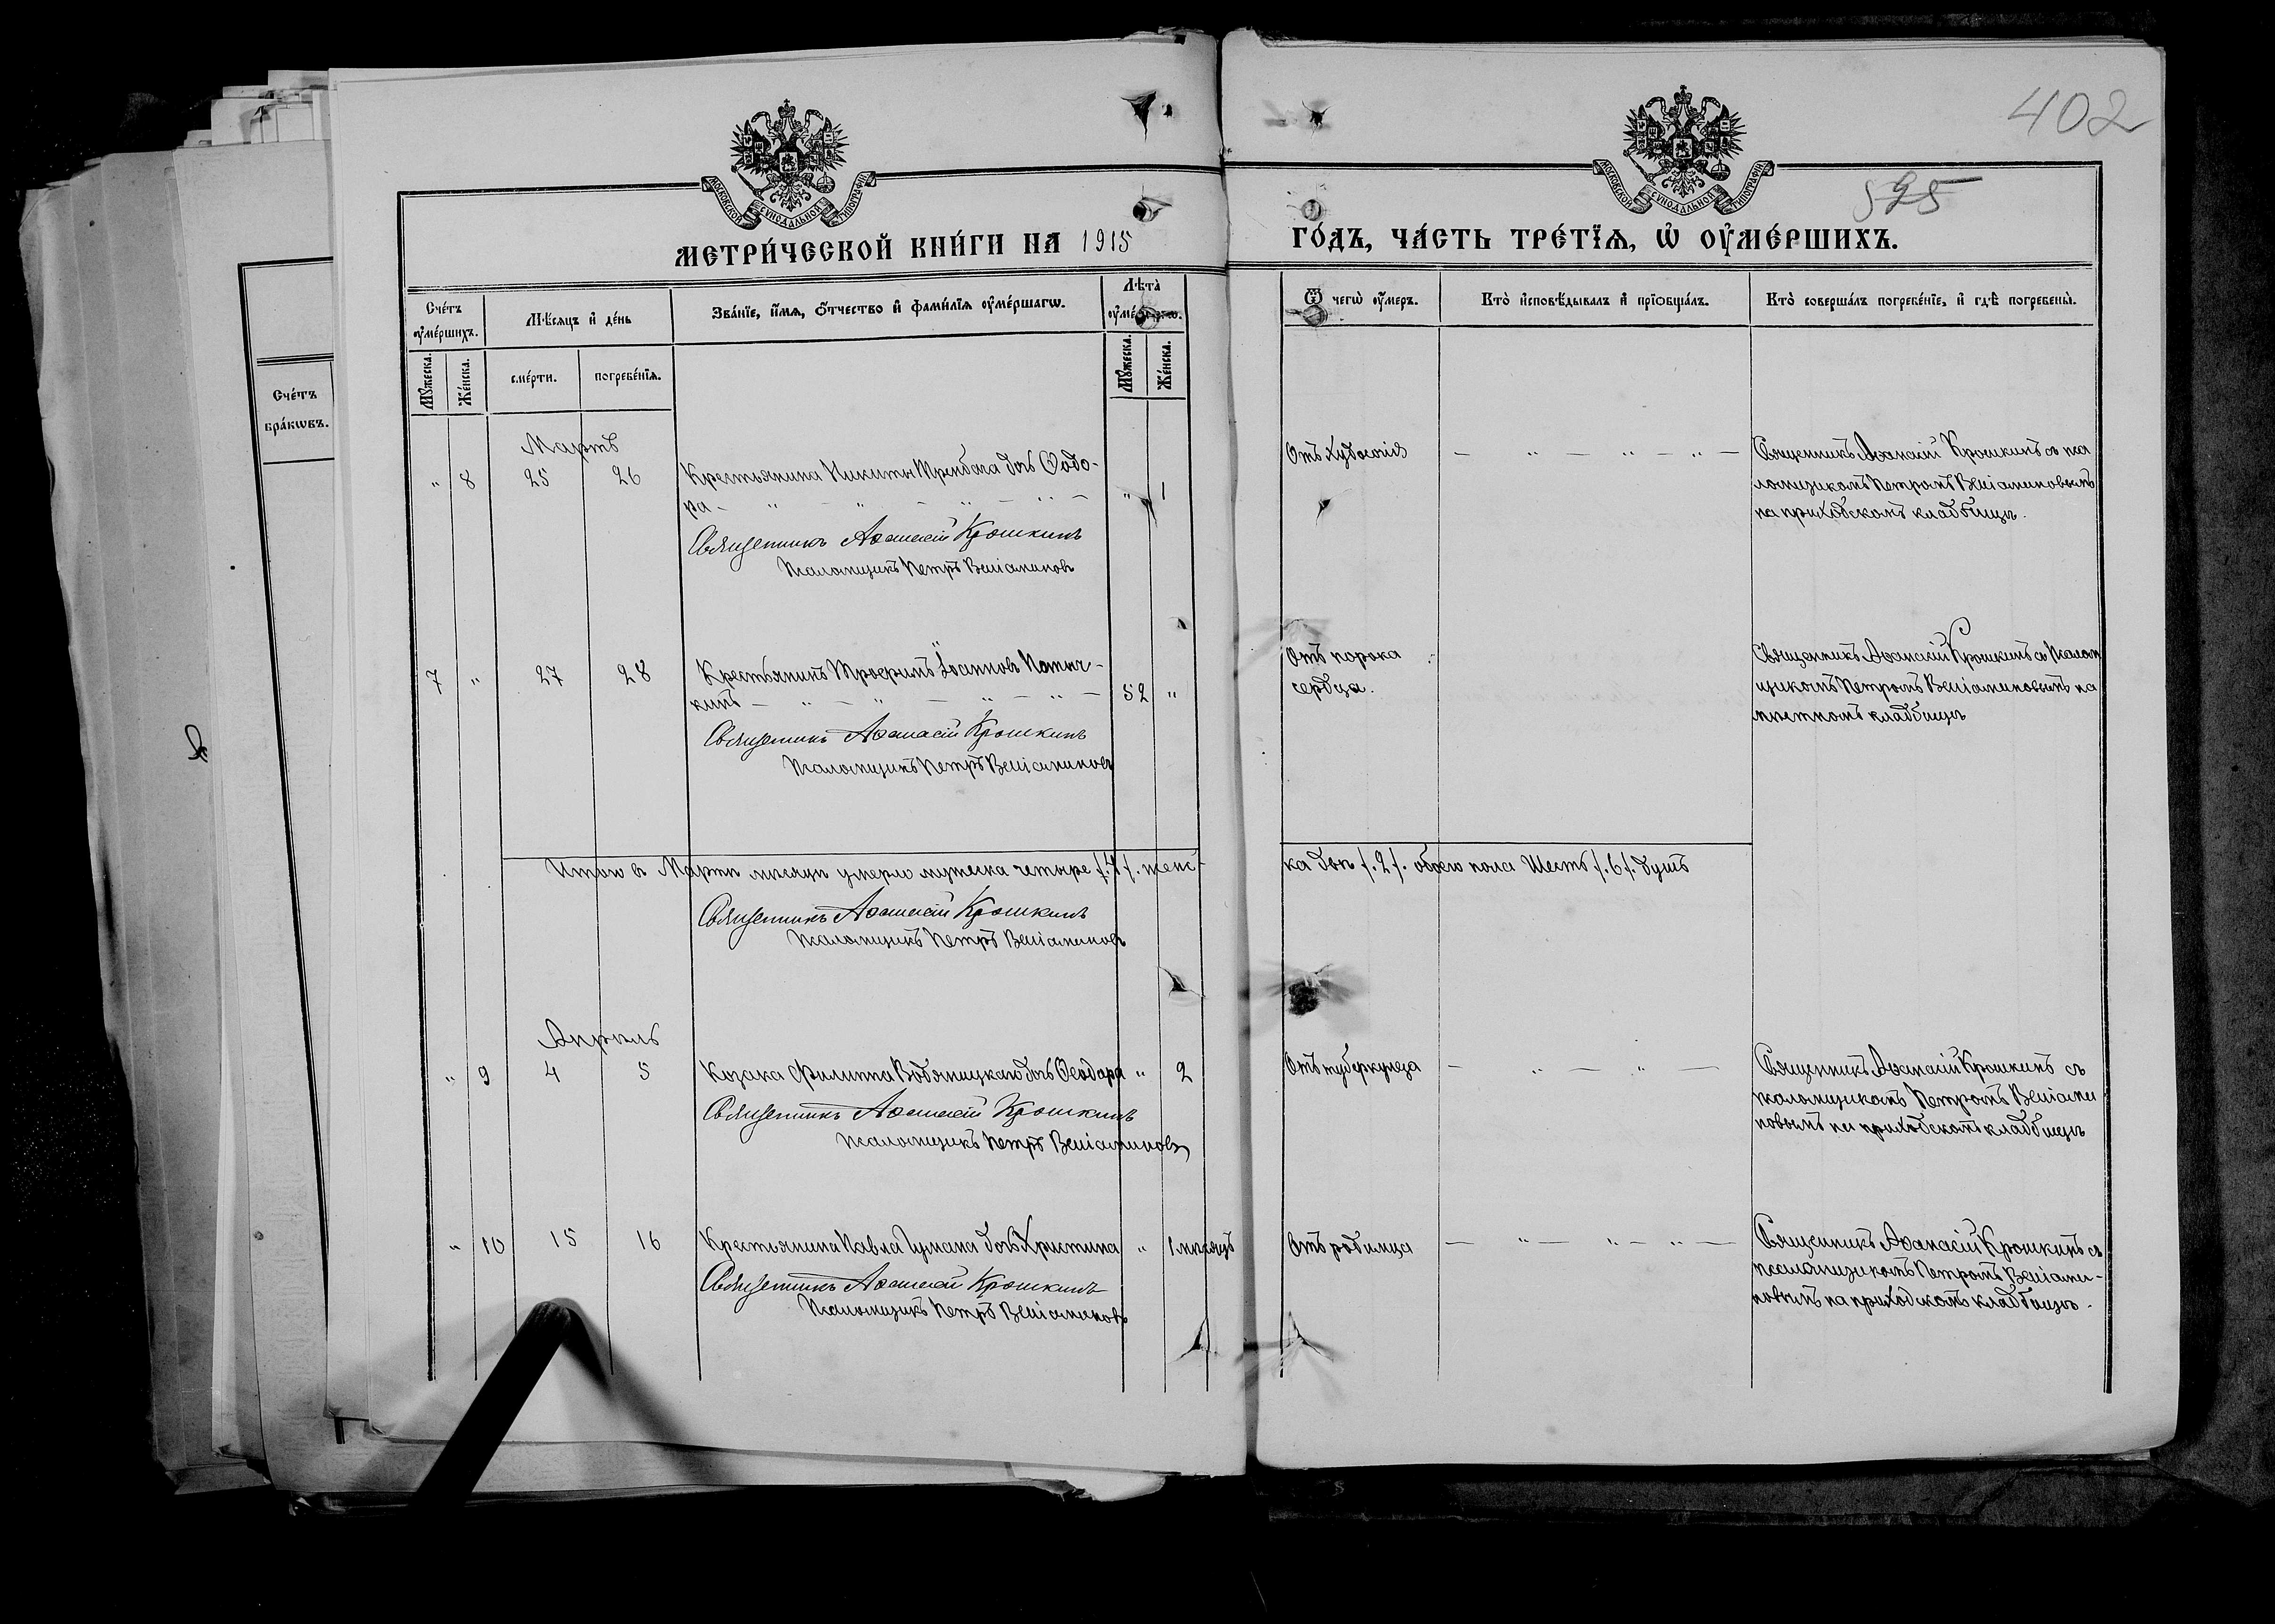 402
595
МОСКОВСКОЙ СѴНОДАЛЬНОЙ ТИПОГРАФІИ
МОСКОВСКОЙ СѴНОДАЛЬНОЙ ТИПОГРАФІИ
МЕТРИ́ЧЕСКОЙ КНИ́ГИ НА 1915
ГО́ДЪ, ЧА́СТЬ ТРЕ́ТІѦ, Ѡ҆ ОУ҆МЕ́РШИХЪ.
Сче́тъ
бра́кѡвъ.
Сче́тъ
оу҆ме́ршихъ.
Мѣ́сяцъ и҆ де́нь
Зва́нїе, и҆́мѧ, ѻ҆́тчество и҆ фамилїѧ оу҆ме́ршагѡ.
Лѣ́та̀
Ѿ чегѡ̀ оу҆́меръ.
Кто̀ и҆сповѣ́дывалъ и҆ прїѡбща́лъ.
Кто̀ соверша́лъ погребе́нїе, и҆ гдѣ̀ погребены̀.
Мꙋ́жеска.
Же́нска.
сме́рти.
погребе́нїѧ.
Мꙋ́жеска.
Же́нска.
Мартъ
" 8 25 26 Крестьянина Никиты дочь Ѳеодо-
ра - " - " - " - " - " 1
Священникъ Аѳанасій Крошкинъ
Псаломщикъ Петръ Веніаминовъ
Отъ худосочія
— " — " — " —
Священникъ Аѳанасій Крошкинъ съ пса
ломщикомъ Петромъ Веніаминовымъ
на приходскомъ кладбищѣ.
7 " 27 28 Крестьянинъ Трофимъ Іоанновъ
кинъ — " — " — " — " — 52 "
Священникъ Аѳанасій Крошкинъ
Псаломщикъ Петръ Веніаминовъ
Отъ порока
сердца.
Священникъ Аѳанасій Крошкинъ съ псалом
щикомъ Петромъ Веніаминовымъ на
мѣстномъ кладбищѣ
Итого въ Мартѣ мѣсяцѣ умерло мужеска четыре /.4/. женс-
ка двѣ /.2/. обоего пола шесть /.6/. душъ
Священникъ Аѳанасій Крошкинъ
Псаломщикъ Петръ Веніаминовъ
Апрѣль
" 9 4 5 Козака Филиппа Водяницкаго дочь Ѳеодора " 2
Священникъ Аѳанасій Крошкинъ
Псаломщикъ Петръ Веніаминовъ
Отъ туберкулеза
— " — " —
Священникъ Аѳанасій Крошкинъ съ
псаломщикомъ Петромъ Веніами
новымъ на приходскомъ кладбищѣ
" 10 15 16 Крестьянина Павла Гумана дочь Христина " 1 мѣсяцъ
Священникъ Аѳанасій Крошкинъ
Псаломщикъ Петръ Веніаминовъ
Отъ родимца
— " — " — " —
Священникъ Аѳанасій Крошкинъ съ
псаломщикомъ Петромъ Веніами-
новымъ на приходскомъ кладбищѣ.